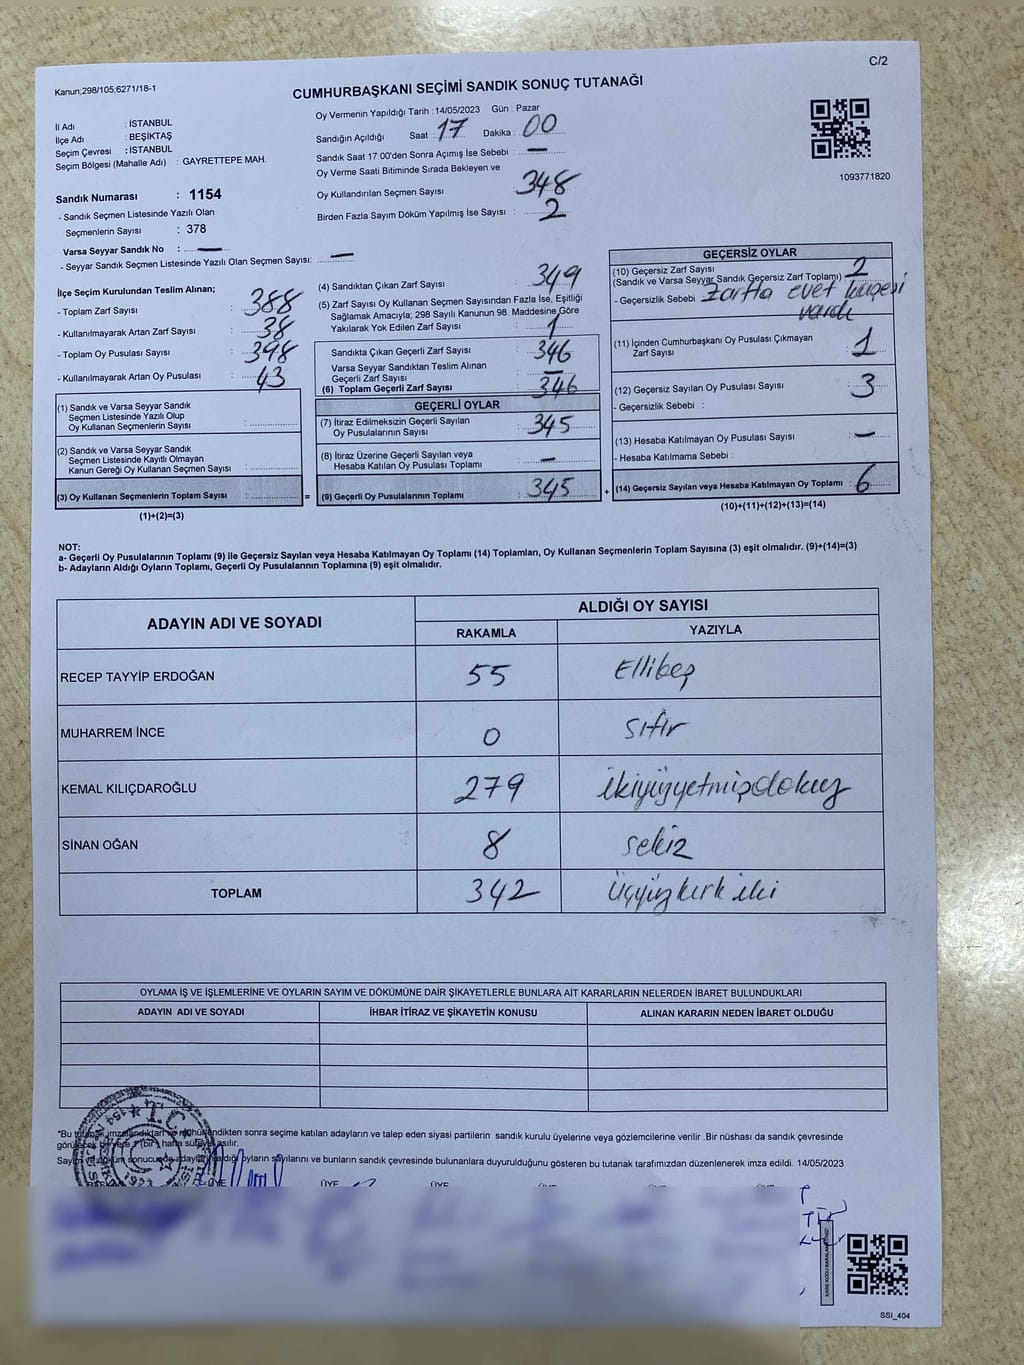 C/2
Kanun;298/105;6271/18-1
CUMHURBAŞKANI SEÇİMİ SANDIK SONUÇ TUTANAĞI
İl Adı : İSTANBUL
İlçe Adı : BEŞİKTAŞ
Seçim Çevresi : İSTANBUL
Seçim Bölgesi (Mahalle Adı) : GAYRETTEPE MAH.
Sandık Numarası : 1154
- Sandık Seçmen Listesinde Yazılı Olan
Seçmenlerin Sayısı : 378
Varsa Seyyar Sandık No : —
- Seyyar Sandık Seçmen Listesinde Yazılı Olan Seçmen Sayısı: —
Oy Vermenin Yapıldığı Tarih : 14/05/2023 Gün : Pazar
Sandığın Açıldığı Saat : 17 Dakika : 00
Sandık Saat 17:00'den Sonra Açımış İse Sebebi : —
Oy Verme Saati Bitiminde Sırada Bekleyen ve
Oy Kullandırılan Seçmen Sayısı : 348
Birden Fazla Sayım Döküm Yapılmış İse Sayısı : 2
1093771820
İlçe Seçim Kurulundan Teslim Alınan;
- Toplam Zarf Sayısı : 388
- Kullanılmayarak Artan Zarf Sayısı : 38
- Toplam Oy Pusulası Sayısı : 398
- Kullanılmayarak Artan Oy Pusulası : 43
(1) Sandık ve Varsa Seyyar Sandık
Seçmen Listesinde Yazılı Olup
Oy Kullanan Seçmenlerin Sayısı :
(2) Sandık ve Varsa Seyyar Sandık
Seçmen Listesinde Kayıtlı Olmayan
Kanun Gereği Oy Kullanan Seçmen Sayısı :
(3) Oy Kullanan Seçmenlerin Toplam Sayısı :
(1)+(2)=(3)
(4) Sandıktan Çıkan Zarf Sayısı : 349
(5) Zarf Sayısı Oy Kullanan Seçmen Sayısından Fazla İse, Eşitliği
Sağlamak Amacıyla; 298 Sayılı Kanunun 98. Maddesine Göre
Yakılarak Yok Edilen Zarf Sayısı : 1
Sandıkta Çıkan Geçerli Zarf Sayısı : 346
Varsa Seyyar Sandıktan Teslim Alınan
Geçerli Zarf Sayısı : —
(6) Toplam Geçerli Zarf Sayısı : 346
GEÇERLİ OYLAR
(7) İtiraz Edilmeksizin Geçerli Sayılan
Oy Pusulalarının Sayısı : 345
(8) İtiraz Üzerine Geçerli Sayılan veya
Hesaba Katılan Oy Pusulası Toplamı : —
= (9) Geçerli Oy Pusulalarının Toplamı : 345 +
GEÇERSİZ OYLAR
(10) Geçersiz Zarf Sayısı : 2
(Sandık ve Varsa Seyyar Sandık Geçersiz Zarf Toplamı)
- Geçersizlik Sebebi : Zarfta evet kaşesi
vardı
(11) İçinden Cumhurbaşkanı Oy Pusulası Çıkmayan
Zarf Sayısı : 1
(12) Geçersiz Sayılan Oy Pusulası Sayısı : 3
- Geçersizlik Sebebi :
(13) Hesaba Katılmayan Oy Pusulası Sayısı : —
- Hesaba Katılmama Sebebi :
(14) Geçersiz Sayılan veya Hesaba Katılmayan Oy Toplamı : 6
(10)+(11)+(12)+(13)=(14)
NOT:
a- Geçerli Oy Pusulalarının Toplamı (9) ile Geçersiz Sayılan veya Hesaba Katılmayan Oy Toplamı (14) Toplamları, Oy Kullanan Seçmenlerin Toplam Sayısına (3) eşit olmalıdır. (9)+(14)=(3)
b- Adayların Aldığı Oyların Toplamı, Geçerli Oy Pusulalarının Toplamına (9) eşit olmalıdır.
ADAYIN ADI VE SOYADI ALDIĞI OY SAYISI
RAKAMLA YAZIYLA
RECEP TAYYİP ERDOĞAN 55 Ellibeş
MUHARREM İNCE 0 Sıfır
KEMAL KILIÇDAROĞLU 279 ikiyüzyetmişdokuz
SİNAN OĞAN 8 sekiz
TOPLAM 342 üçyüzkırk iki
OYLAMA İŞ VE İŞLEMLERİNE VE OYLARIN SAYIM VE DÖKÜMÜNE DAİR ŞİKAYETLERLE BUNLARA AİT KARARLARIN NELERDEN İBARET BULUNDUKLARI
ADAYIN ADI VE SOYADI İHBAR İTİRAZ VE ŞİKAYETİN KONUSU ALINAN KARARIN NEDEN İBARET OLDUĞU
*Bu tutanak imzalandıktan ve mühürlendikten sonra seçime katılan adayların ve talep eden siyasi partilerin sandık kurulu üyelerine veya gözlemcilerine verilir .Bir nüshası da sandık çevresinde
görülecek bir yere 1 (bir) hafta süreyle asılır.
Sayım ve döküm sonucunda adayların aldığı oyların sayılarını ve bunların sandık çevresinde bulunanlara duyurulduğunu gösteren bu tutanak tarafımızdan düzenlenerek imza edildi. 14/05/2023
T.C.
ÜYE ÜYE ÜYE
SSI_404